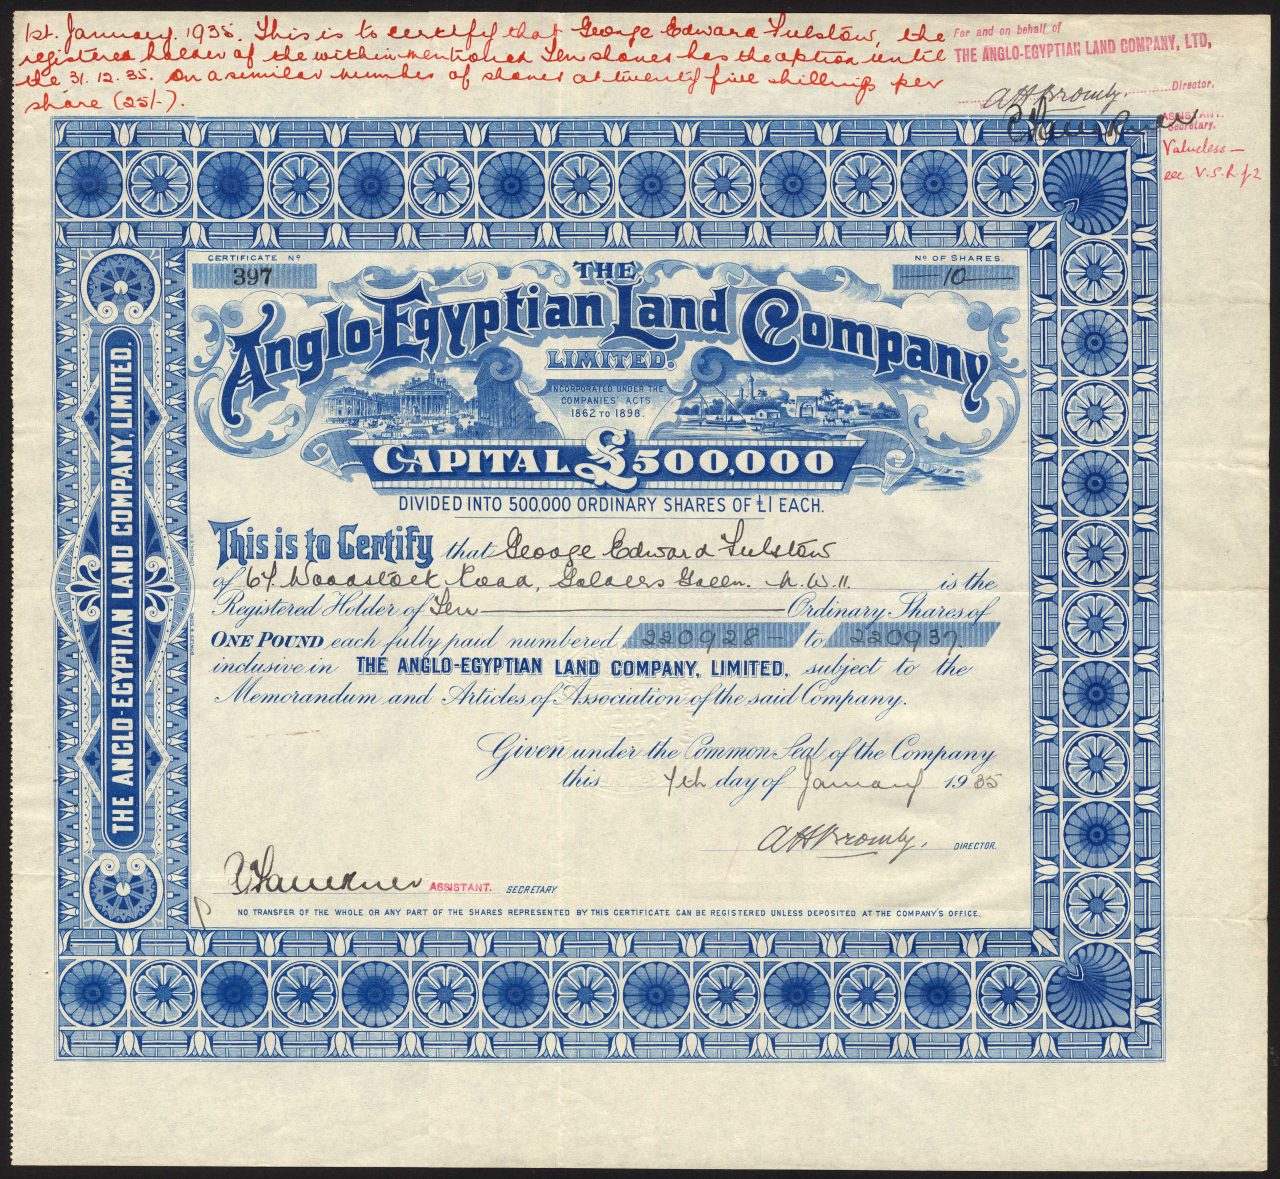 1st. January. 1935. This is to certify that George Edward Fulstow, the
registered holder of the within mentioned Ten shares has the option until
the 31.12.35. on a similar number of shares at twenty five shillings per
share (25/-).
For and on behalf of
THE ANGLO-EGYPTIAN LAND COMPANY, LTD,
A H Bromly. Director.
Faulkner ASSISTANT.
Secretary.
Valueless —
V.S.
CERTIFICATE No
397
No OF SHARES.
10
THE
Anglo-Egyptian Land Company
LIMITED.
INCORPORATED UNDER THE
COMPANIES' ACTS
1862 TO 1898.
CAPITAL £500,000
DIVIDED INTO 500,000 ORDINARY SHARES OF £1 EACH.
This is to Certify that George Edward Fulstow
of 64 Woodstock Road, Golders Green. N.W.11. is the
Registered Holder of Ten Ordinary Shares of
ONE POUND each fully paid numbered 220928 - to 220937
inclusive in THE ANGLO-EGYPTIAN LAND COMPANY, LIMITED, subject to the
Memorandum and Articles of Association of the said Company.
Given under the Common Seal of the Company
this 4th day of January 1935
A H Bromly. DIRECTOR.
Faulkner ASSISTANT. SECRETARY
NO TRANSFER OF THE WHOLE OR ANY PART OF THE SHARES REPRESENTED BY THIS CERTIFICATE CAN BE REGISTERED UNLESS DEPOSITED AT THE COMPANY'S OFFICE.
THE ANGLO-EGYPTIAN LAND COMPANY, LIMITED.